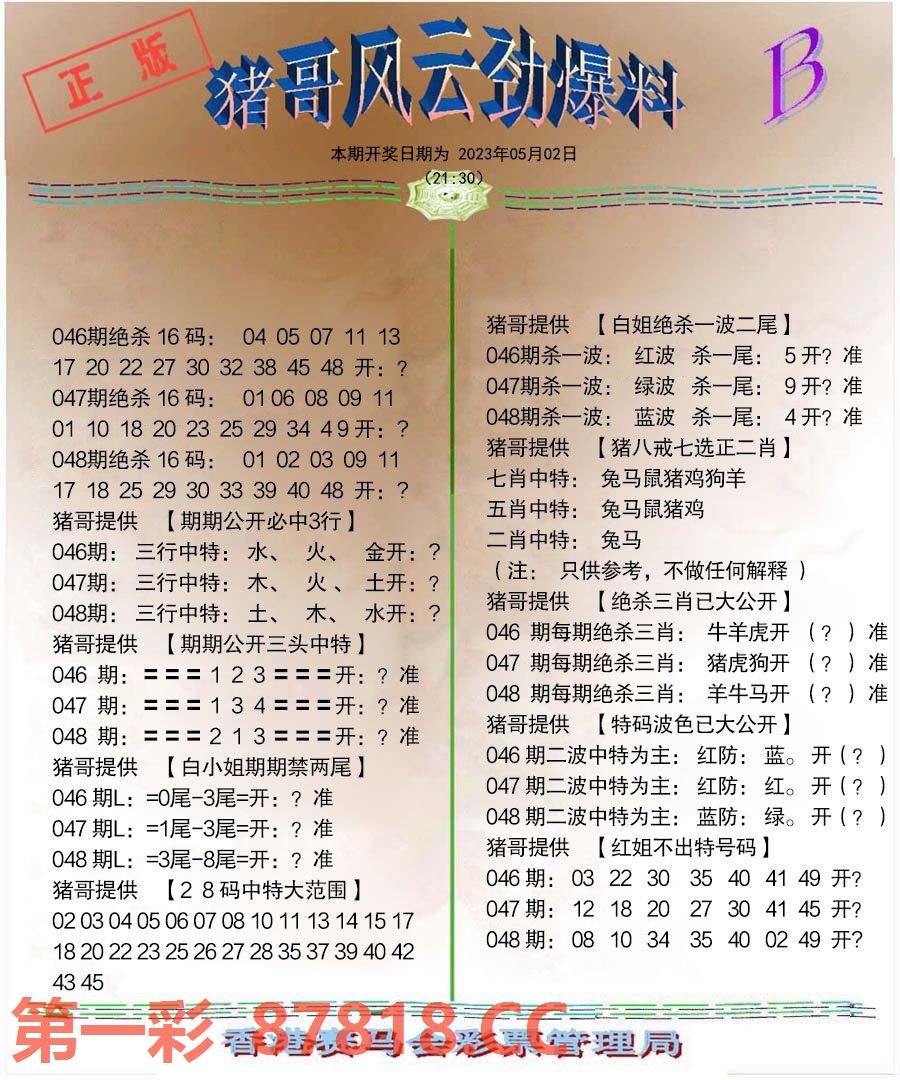 正版
猪哥风云劲爆料
B
本期开奖日期为 2023年05月02日
(21:30)
046期绝杀 16 码: 04 05 07 11 13
17 20 22 27 30 32 38 45 48 开: ?
047期绝杀 16 码: 01 06 08 09 11
01 10 18 20 23 25 29 34 4 9 开: ?
048期绝杀 16 码: 01 02 03 09 11
17 18 25 29 30 33 39 40 48 开: ?
猪哥提供 【期期公开必中3行】
046期: 三行中特: 水、 火、 金开: ?
047期: 三行中特: 木、 火、 土开: ?
048期: 三行中特: 土、 木、 水开: ?
猪哥提供 【期期公开三头中特】
046 期: === 1 2 3 ===开: ? 准
047 期: === 1 3 4 ===开: ? 准
048 期: === 2 1 3 ===开: ? 准
猪哥提供 【白小姐期期禁两尾】
046 期L: =0尾-3尾=开: ? 准
047 期L: =1尾-3尾=开: ? 准
048 期L: =3尾-8尾=开: ? 准
猪哥提供 【2 8 码中特大范围】
02 03 04 05 06 07 08 10 11 13 14 15 17
18 20 22 23 25 26 27 28 35 37 39 40 42
43 45
猪哥提供 【白姐绝杀一波二尾】
046期杀一波: 红波 杀一尾: 5 开? 准
047期杀一波: 绿波 杀一尾: 9 开? 准
048期杀一波: 蓝波 杀一尾: 4 开? 准
猪哥提供 【猪八戒七选正二肖】
七肖中特: 兔马鼠猪鸡狗羊
五肖中特: 兔马鼠猪鸡
二肖中特: 兔马
(注: 只供参考,不做任何解释 )
猪哥提供 【绝杀三肖已大公开】
046 期每期绝杀三肖: 牛羊虎开 (? )准
047 期每期绝杀三肖: 猪虎狗开 (? )准
048 期每期绝杀三肖: 羊牛马开 (? )准
猪哥提供 【特码波色已大公开】
046 期二波中特为主: 红防: 蓝。开(? )
047 期二波中特为主: 红防: 红。开(? )
048 期二波中特为主: 蓝防: 绿。开(? )
猪哥提供 【红姐不出特号码】
046 期: 03 22 30 35 40 41 49 开?
047 期: 12 18 20 27 30 41 45 开?
048 期: 08 10 34 35 40 02 49 开?
第一彩 87818.CC
香港赛马会彩票管理局